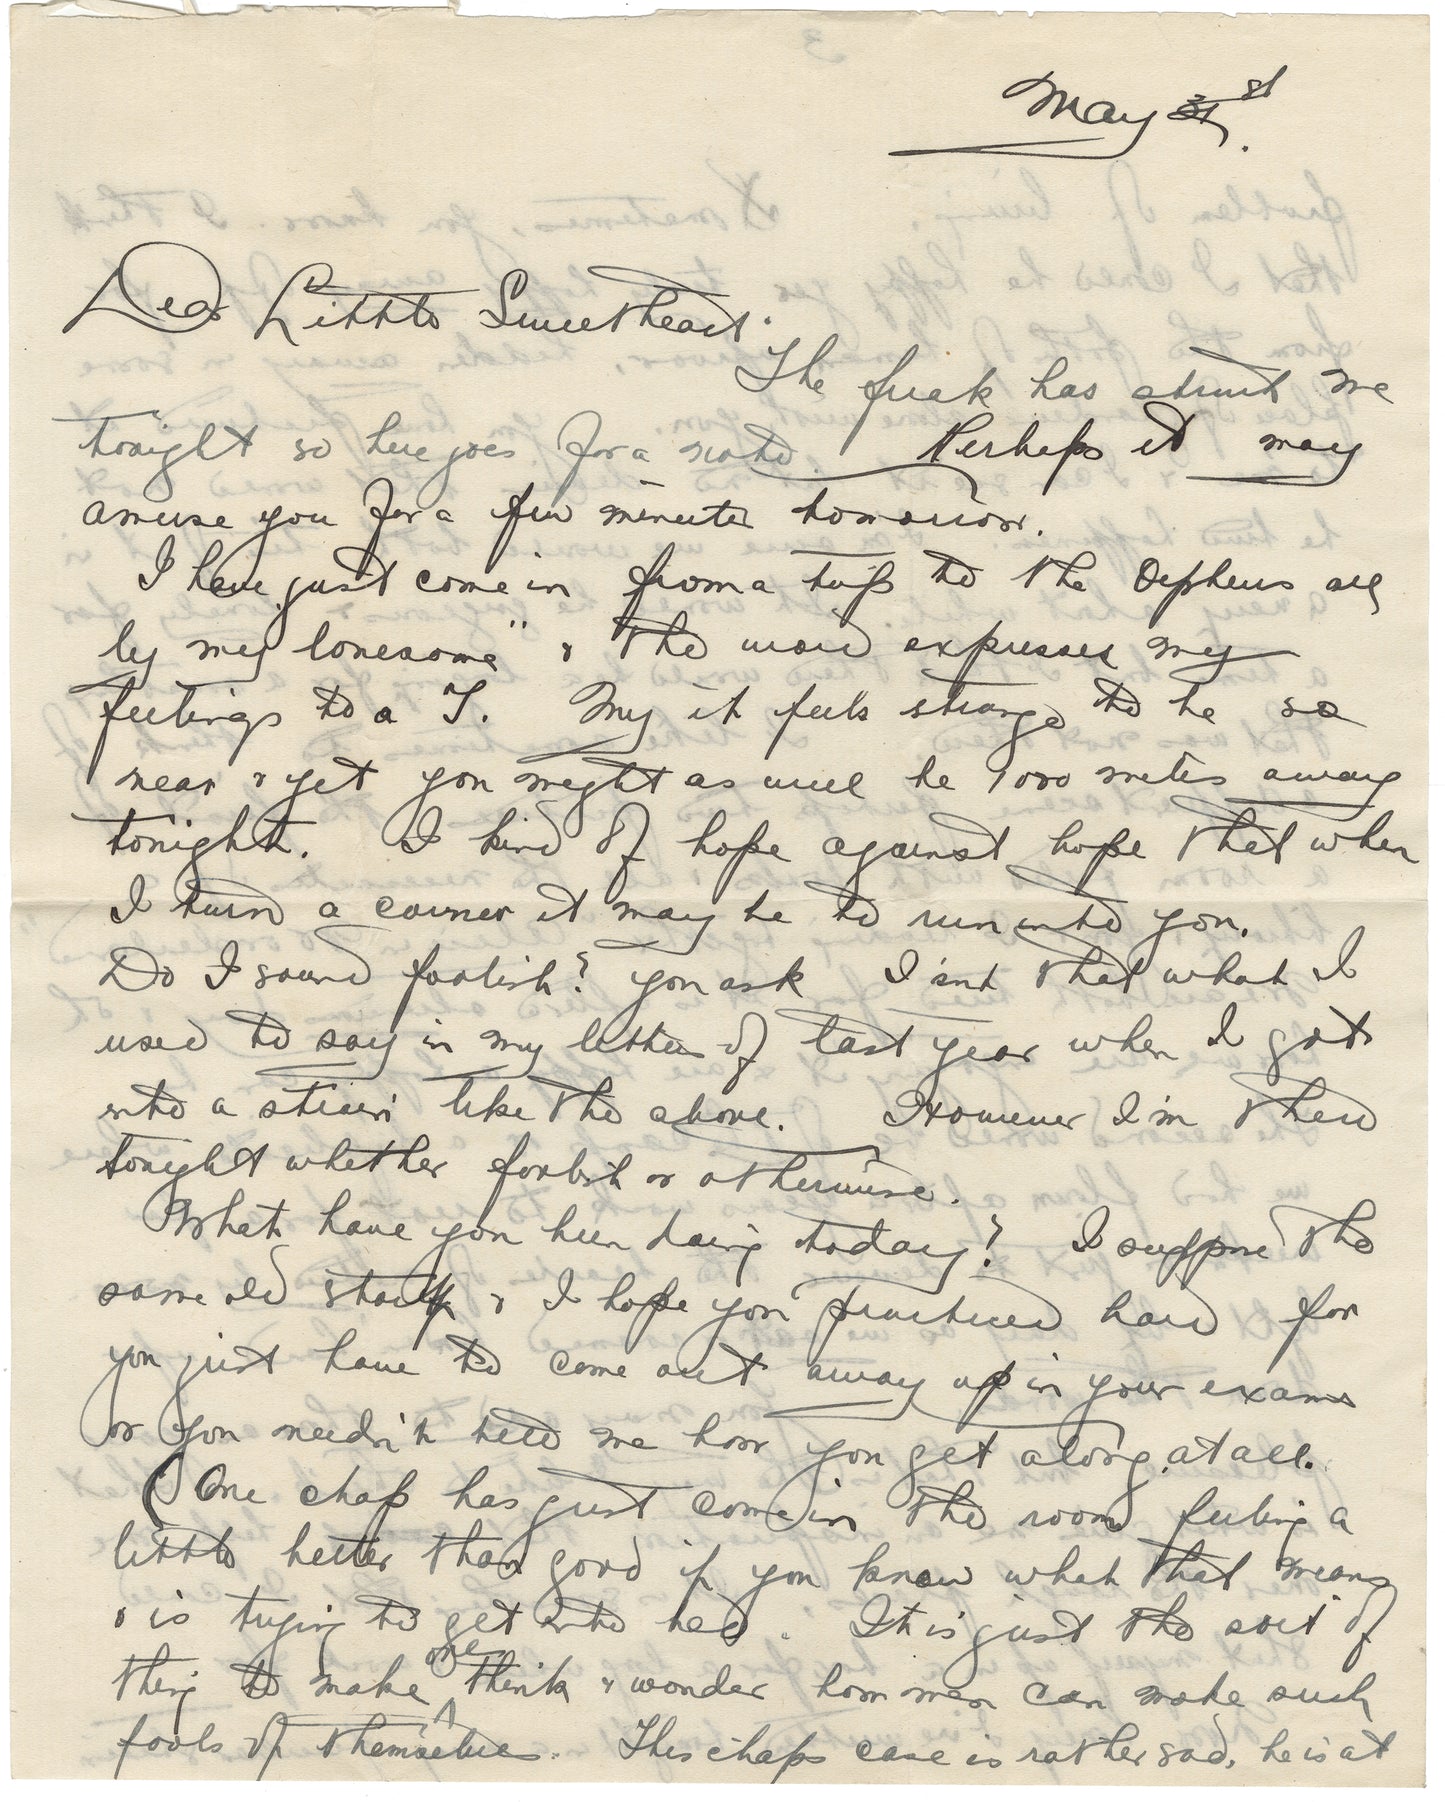 May 31st.
Dear Little Sweetheart:
The freak has struck me
tonight so here goes for a note. Perhaps it may
amuse you for a few minutes tomorrow.
I have just come in from a trip to the Orpheus all
by my lonesome" & the word expresses my
feelings to a T. My it feels strange to be so
near & yet you might as well be 1000 metres away
tonight. I kind of hope against hope that when
I turn a corner it may be to run into you.
Do I sound foolish? you ask Isnt that what I
used to say in my letters of last year when I got
into a strain like the above. However I'm there
tonight whether foolish or otherwise.
What have you been doing today? I suppose the
same old stuff & I hope you practiced hard for
you just have to come out away up in your exams
or you needn't tell me how you get along at all.
(One chap has just come in the room feeling a
little better than good if you know what that means
& is trying to get into bed. It is just the sort of
thing to make one think & wonder how men can make such
fools of themselves. This chaps case is rather sad, he is at